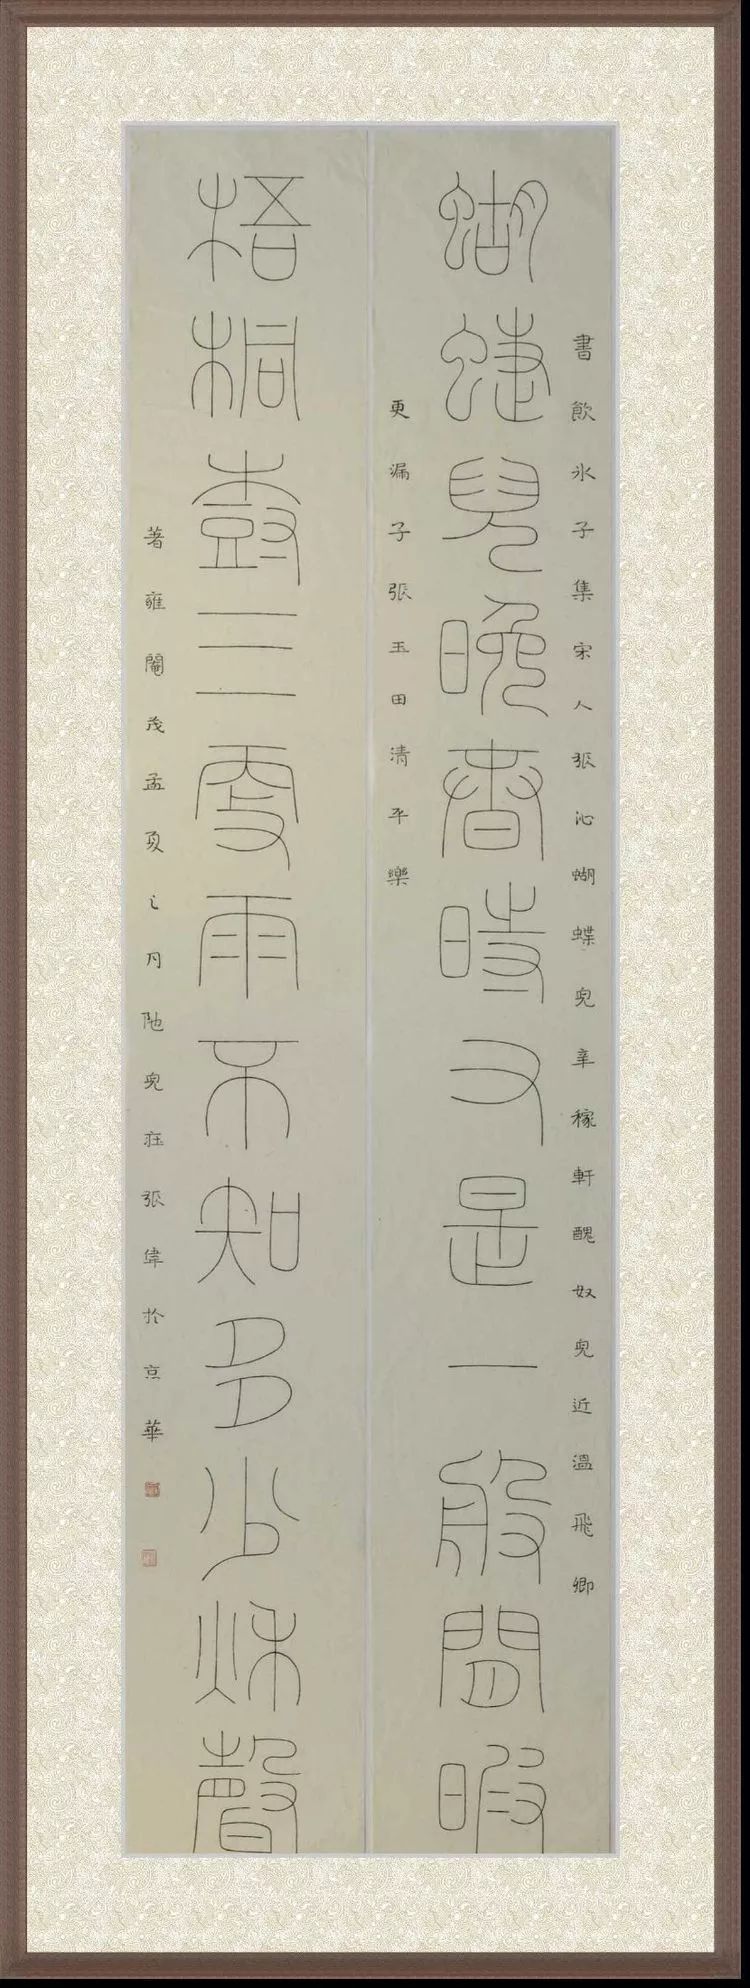 書飲冰子集宋人張泌蝴蝶兒辛稼軒醜奴兒近溫飛卿
蝴蜨兒晚春時又是一般閒暇
更漏子張玉田清平樂
梧桐尌三更雨不知多少秋聲
著雍閹茂孟夏之月阤兒莊張偉於京華